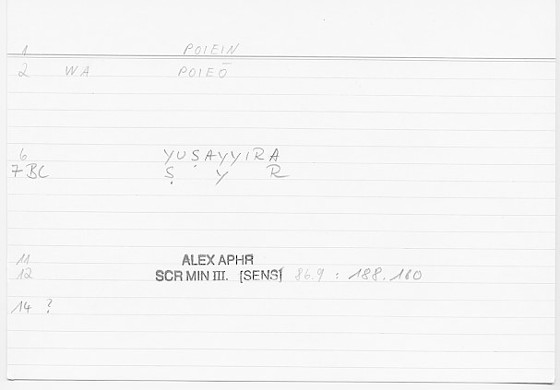 1 POIEIN
2 WA POIEŌ
6 YUṢAYYIRA
7 BC Ṣ Y R
11 ALEX APHR
12 SCR MIN III. [SENS] 86.9 : 188.160
14 ?